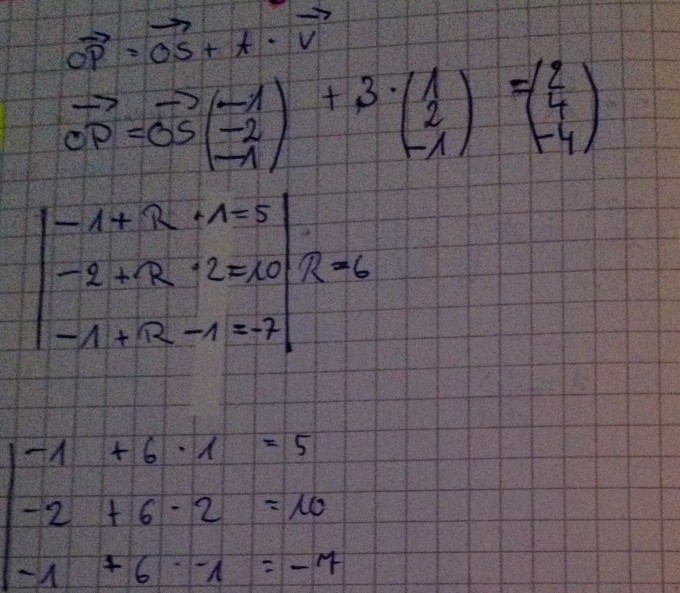 →OP = →OS + t · →V
→OP = →OS (-1 -2 -1) + 3 · (1 2 -1) = (2 4 -4)
| -1 + R · 1 = 5 |
| -2 + R · 2 = 10 | R = 6
| -1 + R - 1 = -7 |
| -1 + 6 · 1 = 5
| -2 + 6 · 2 = 10
| -1 + 6 · -1 = -7